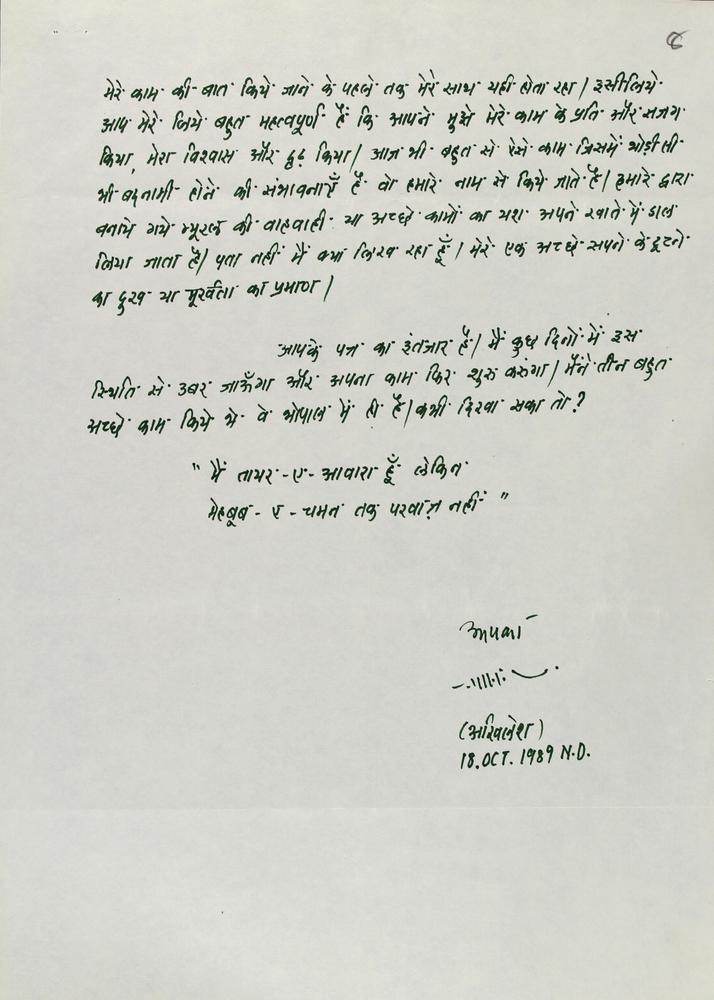 8
मेरे काम की बात किये जाने के पहले तक मेरे साथ यही होता रहा | इसीलिये
आप मेरे लिये बहुत महत्वपूर्ण हैं कि आपने मुझे मेरे काम के प्रति और सजग
किया, मेरा विश्वास और दृढ़ किया | आज भी बहुत से ऐसे काम जिसमें थोड़ी सी
भी बदनामी होने की संभावनाएँ है वो हमारे नाम से किये जाते है | हमारे द्वारा
बनाये गये म्यूरल की वाहवाही या अच्छे कामों का यश अपने खाते में डाल
लिया जाता है | पता नहीं मैं क्या लिख रहा हूँ | मेरे एक अच्छे सपने के टूटने
का दुख या मूर्खता का प्रमाण |
आपके पत्र का इंतजार है | मैं कुछ दिनों में इस
स्थिति से उबर जाऊँगा और अपना काम फिर शुरू करूंगा | मैंने तीन बहुत
अच्छे काम किये थे वे भोपाल में ही है | कभी दिखा सका तो ?
" मैं तायर - ए - आवारा हूँ लेकिन
मेहबूब - ए - चमन तक परवाज़ नहीं "
आपका
(अखिलेश)
18. OCT. 1989 N.D.